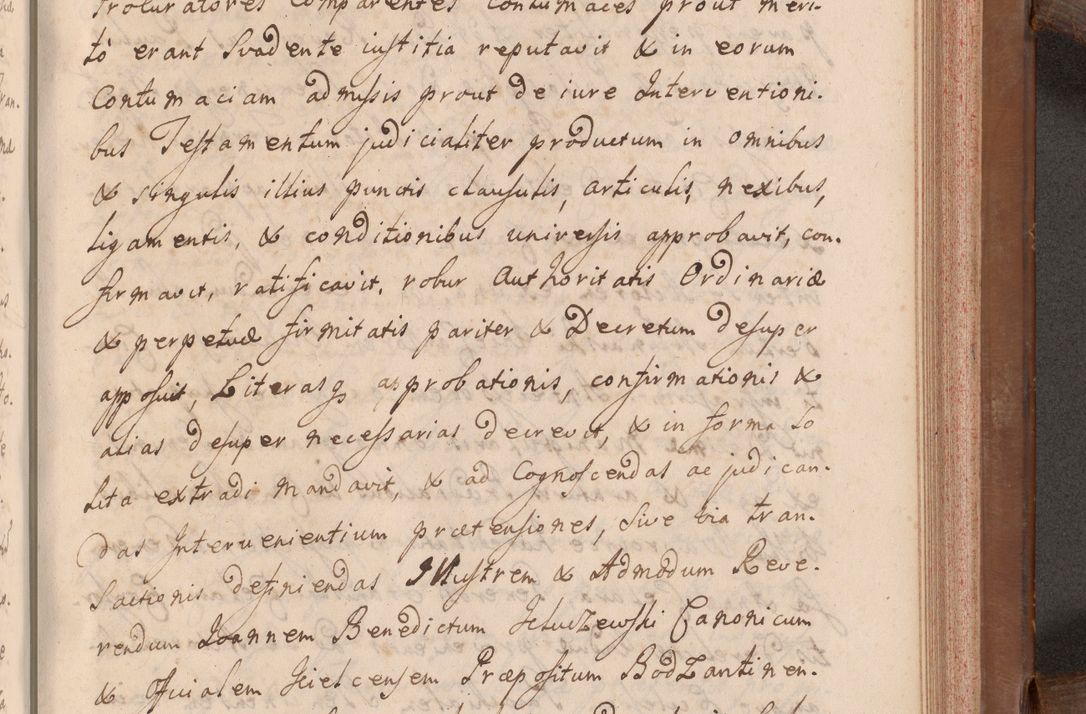 Procuratores Comparentes Contumaces prout meri-
tò erant Svadente iustitia reputavit & in eorum
Contumaciam admissis prout de iure Interventioni-
bus Testamentum judicialiter productum in omnibus
& singulis illius punctis clausulis, articulis, nexibus,
ligamentis, & conditionibus universis approbavit, con-
firmavit, ratificavit, robur Authoritatis Ordinariæ
& perpetuæ firmitatis pariter & Decretum desuper
apposuit, Literasq approbationis, confirmationis &
alias desuper necessarias decrevit, & in forma So
lita extradi mandavit, & ad Cognoscendas ac judican-
das Intervenientium prætensiones, sive via tran-
sactionis definiendas Illustrem & Admodum Reve-
rendum Joannem Benedictum Canonicum
& Officialem Kielcensem Præpositum Bodzantinen-